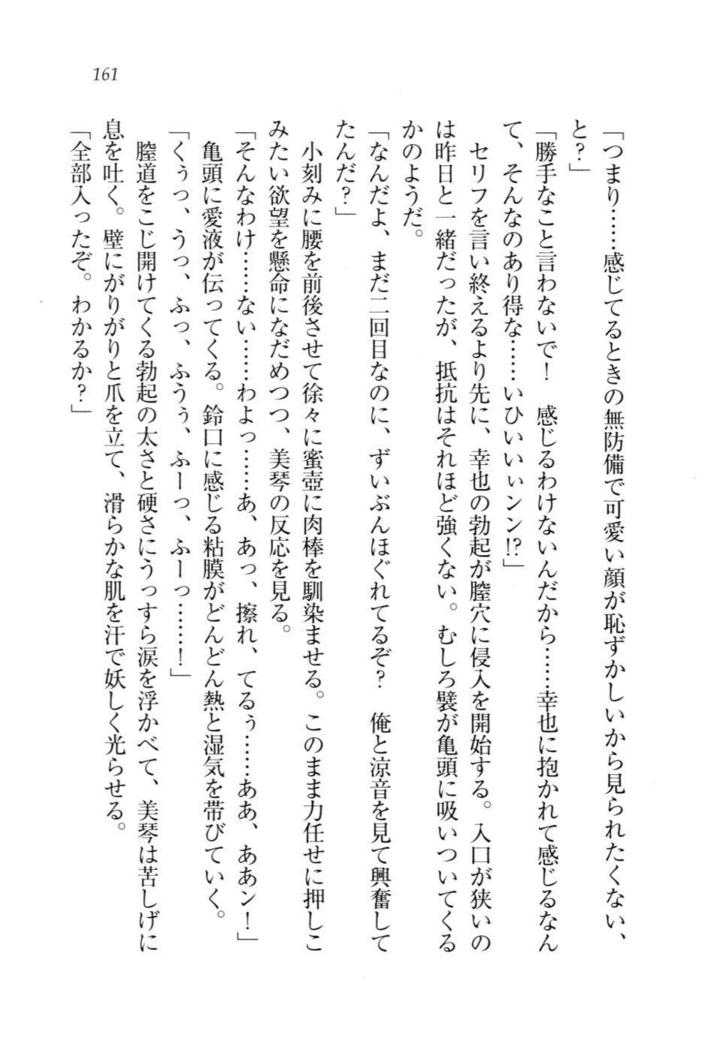 161
「つまり……感じてるときの無防備で可愛い顔が恥ずかしいから見られたくない、
と？」
「勝手なこと言わないで！　感じるわけないんだから……幸也に抱かれて感じるなん
て、そんなのあり得な……いひいぃぃンン!?」
　セリフを言い終えるより先に、幸也の勃起が膣穴に侵入を開始する。入口が狭いの
は昨日と一緒だったが、抵抗はそれほど強くない。むしろ襞が亀頭に吸いついてくる
かのようだ。
「なんだよ、まだ二回目なのに、ずいぶんほぐれてるぞ？　俺と涼音を見て興奮して
たんだ？」
　小刻みに腰を前後させて徐々に蜜壺に肉棒を馴染ませる。このまま力任せに押しこ
みたい欲望を懸命になだめつつ、美琴の反応を見る。
「そんなわけ……ない……わよっ……あ、あっ、擦れ、てるぅ……ああ、ああン！」
　亀頭に愛液が伝ってくる。鈴口に感じる粘膜がどんどん熱と湿気を帯びていく。
「くぅっ、うっ、ふっ、ふうぅ、ふーっ、ふーっ……！」
　膣道をこじ開けてくる勃起の太さと硬さにうっすら涙を浮かべて、美琴は苦しげに
息を吐く。壁にがりがりと爪を立て、滑らかな肌を汗で妖しく光らせる。
「全部入ったぞ。わかるか？」